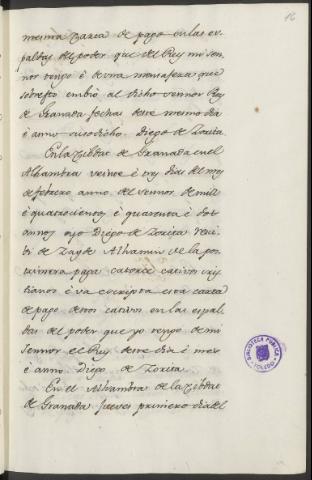 16
mesma Carta de pago en las es-
paldas del poder que del Rey mi Sen-
nor tengo é de una mensajera que
sobresto embió al dicho Sennor Rey
de Granada fechas deste mesmo dia
é anno susodicho. Diego de Zorita.
En la Cibdat de Granada en el
Alhambra veinte é tres dias del mes
de febrero anno del Sennor de mill
é quatrocientos é quarenta é dos
annos yo Diego de Zorita reci-
bi de Zayde Alhamin de la pos-
trimera paga catorce cativos cris-
tianos é va escripta esta carta
de pago destos cativos en las espal-
das del poder que yo tengo de mi
Sennor el Rey deste dia é mes
é anno Diego de Zorita.
En el Alhambra de la Cibdat
de Granada Jueves primero dia del
BIBLIOTECA PUBLICA
TOLEDO